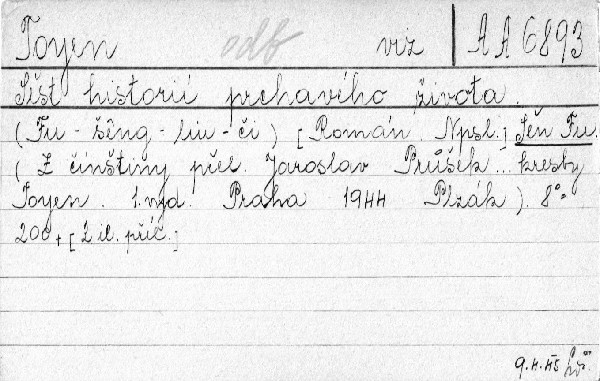 Toyen odb viz AA 6893
Šest historií prchavého života.
(Fu-šêng-liu-či) [Román. Npsl.] Šěn Fu.
(Z čínštiny přel. Jaroslav Průšek... kresby
Toyen. 1. vyd. Praha 1944 Plzák). 8°.
200 + [2 il. příl.]
9.4.45